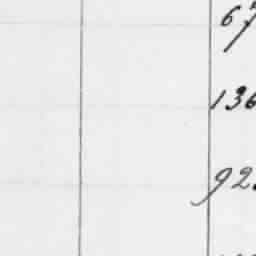 67
136
92